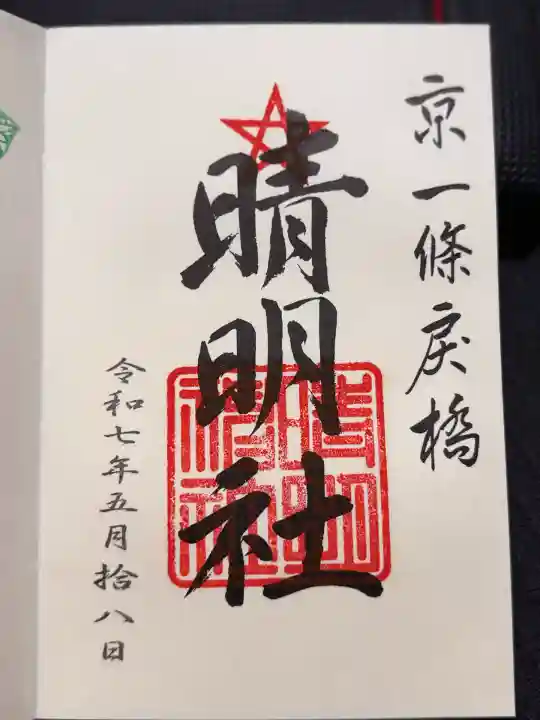 京一條戻橋
晴明社
令和七年五月拾八日